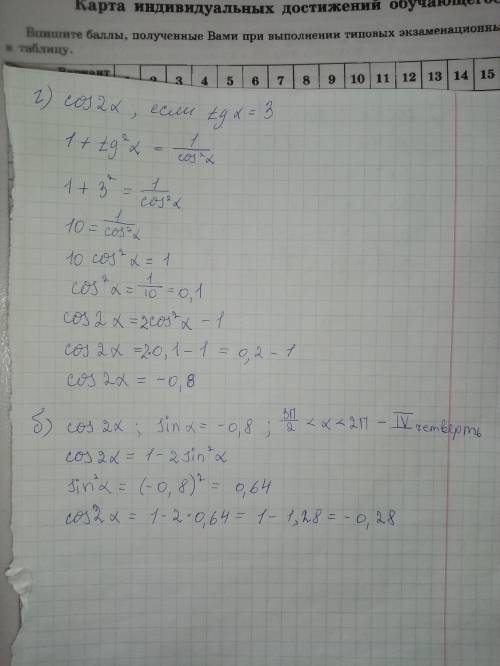 Карта индивидуальных достижений обучающегос
Впишите баллы, полученные Вами при выполнении типовых экзаменационны
в таблицу.
Вариант 2 3 4 5 6 7 8 9 10 11 12 13 14 15
г) cos2α , если tgα = 3
1 + tg²α = 1/cos²α
1 + 3² = 1/cos²α
10 = 1/cos²α
10 cos²α = 1
cos²α = 1/10 = 0,1
cos2α = 2cos²α - 1
cos2α = 2·0,1 - 1 = 0,2 - 1
cos2α = -0,8
б) cos2α ; sinα = -0,8 ; 3П/2 < α < 2П - IV четверть
cos2α = 1 - 2sin²α
sin²α = (-0,8)² = 0,64
cos2α = 1 - 2·0,64 = 1 - 1,28 = -0,28